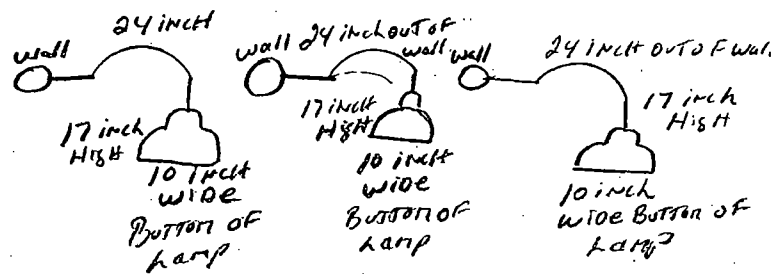 24 inch
wall
17 inch
High
10 inch
WIDE
BOTTOM OF
Lamp
wall 24 inch OUT OF
wall
17 inch
High
10 inch
WIDE
BOTTOM OF
Lamp
24 inch OUT OF Wall
wall
17 inch
High
10 inch
WIDE BOTTOM OF
Lamp